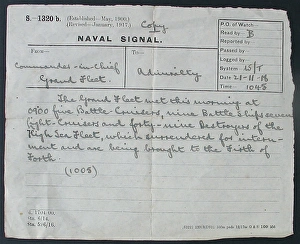 S. 1320 b. (Established—May, 1900.)
(Revised—January, 1917.)
Copy
P.O. of Watch
NAVAL SIGNAL.
Read by B
Reported by
Passed by
Logged by
System W/T
Date 21-11-18
Time 1045
From—
To—
Commander-in-Chief
Grand Fleet.
Admiralty
The Grand Fleet met this morning at
0900 five Battle-Cruisers, nine Battleships seven
Light-Cruisers and forty-nine Destroyers of the
High Sea Fleet, which surrendered for intern-
ment and are being brought to the Firth of
Forth.
(1005)